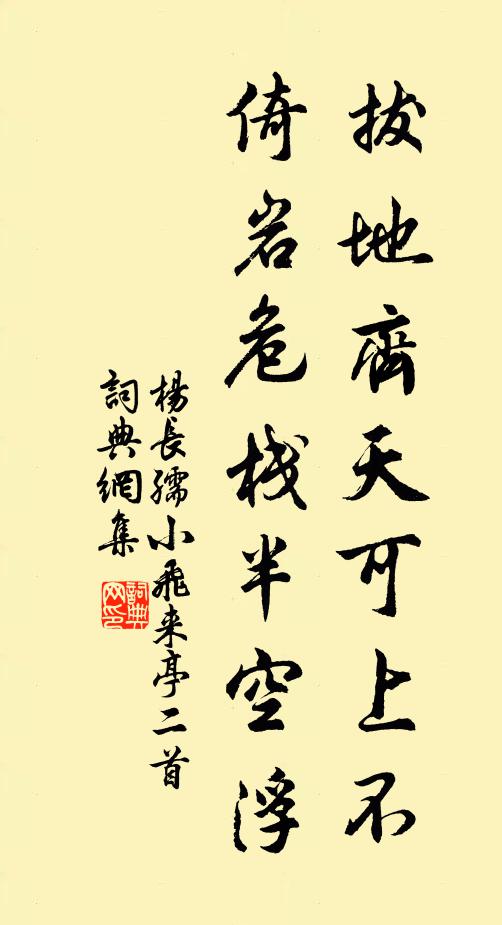 拔地齊天可上不
倚岩危栈半空浮
楊長孺小飛来亭二首
詞典網集
詞典
网印